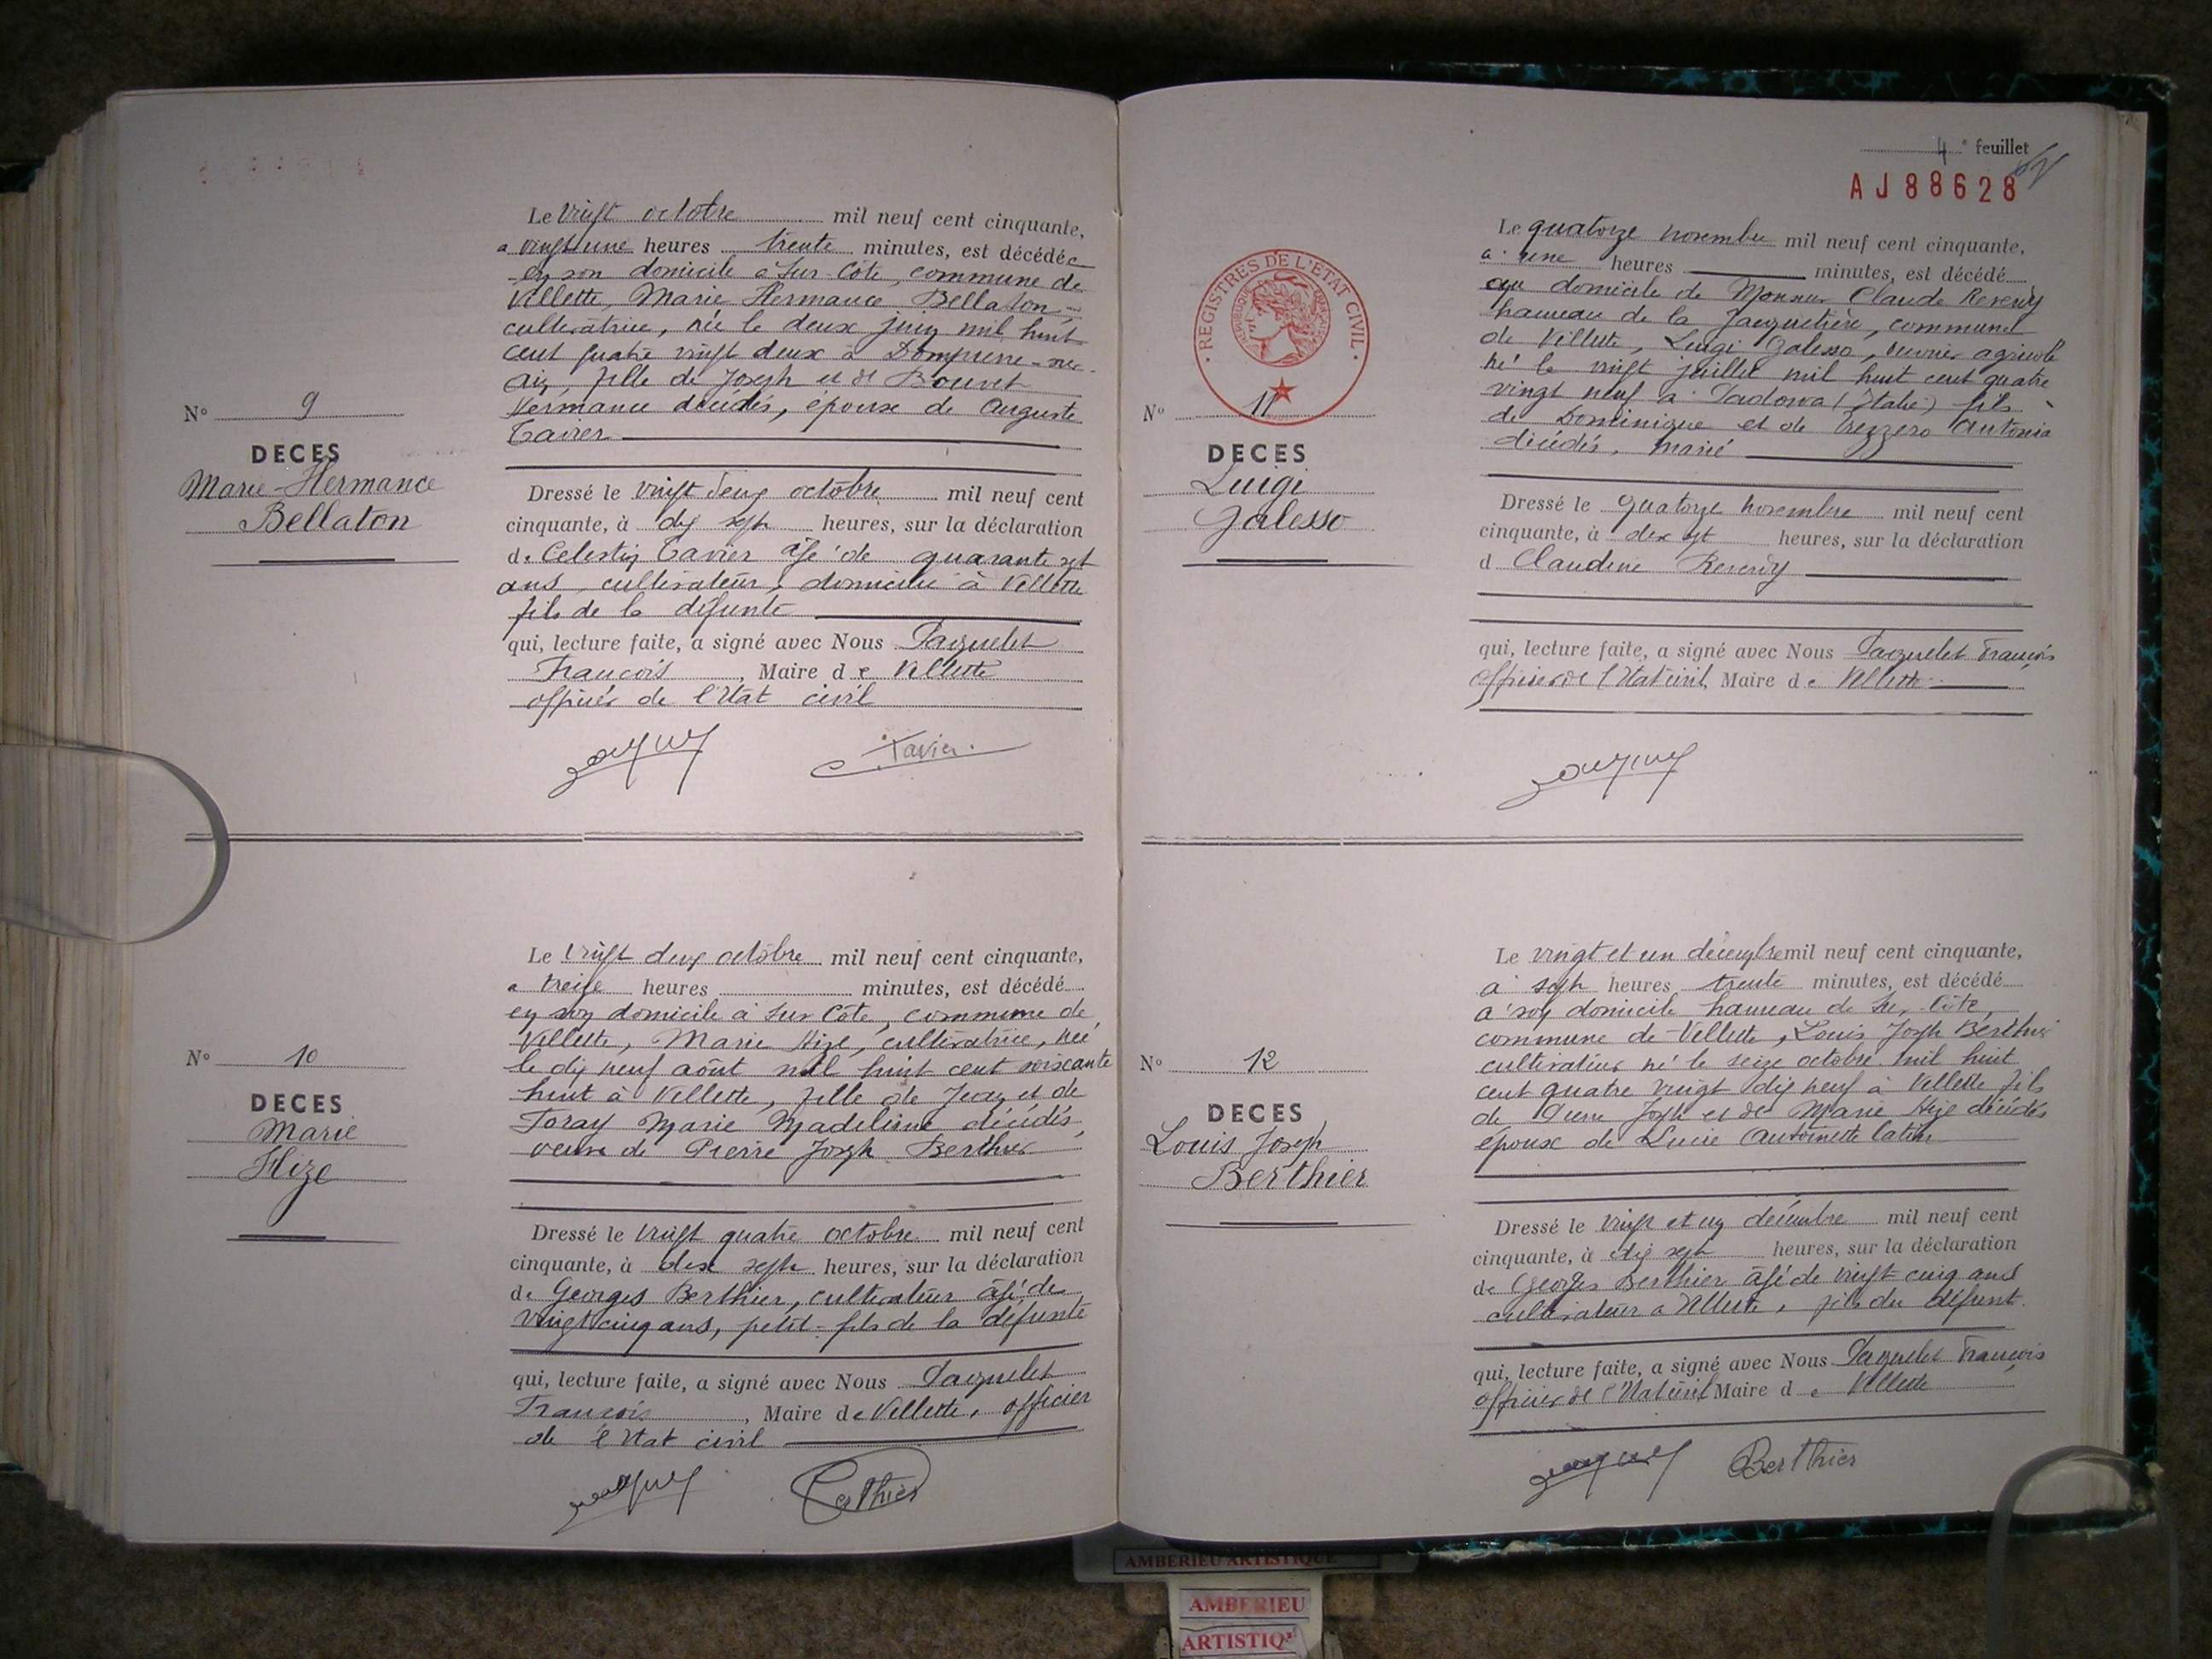 Le vingt octobre mil neuf cent cinquante,
a vingt une heures trente minutes, est décédée
en son domicile à Sur-Côte, commune de
Villette, Marie Hermance Bellaton
cultivatrice, née le deux juin mil huit
cent quatre vingt deux à Dompierre-sur-
Ain, fille de Joseph et de Bouvet
Hermance décédés, épouse de Auguste
Tavier
N° 9
DECES
Marie-Hermance
Bellaton
Dressé le vingt deux octobre mil neuf cent
cinquante, à dix sept heures, sur la déclaration
de Celestin Tavier âgé de quarante sept
ans, cultivateur, domicilié à Villette
fils de la défunte
qui, lecture faite, a signé avec Nous Paquelet
François, Maire de Villette
officier de l'Etat civil
Tavier
Le vingt deux octobre mil neuf cent cinquante,
a treize heures minutes, est décédé
en son domicile à Sur Côte, commune de
Villette, Marie Hize, cultivatrice, née
le dix neuf août mil huit cent soixante
huit à Villette, fille de Jean et de
Foray Marie Madeleine décédés,
veuve de Pierre Joseph Berthier
N° 10
DECES
Marie
Hize
Dressé le vingt quatre octobre mil neuf cent
cinquante, à dix sept heures, sur la déclaration
de Georges Berthier, cultivateur âgé de
vingt cinq ans, petit-fils de la défunte
qui, lecture faite, a signé avec Nous Paquelet
François, Maire de Villette, officier
de l'Etat civil
Berthier
4e feuillet
AJ88628
REGISTRES DE L'ETAT CIVIL
Le quatorze novembre mil neuf cent cinquante,
à une heures minutes, est décédé
au domicile de Monsieur Claude
hameau de la Jacquetière, commune
de Villette, Luigi Galesso, ouvrier agricole
né le vingt juillet mil huit cent quatre
vingt neuf à Padova (Italie) fils
de Dominique et de Trezzero Antonia
décédés, marié
N° 11
DECES
Luigi
Galesso
Dressé le quatorze novembre mil neuf cent
cinquante, à dix sept heures, sur la déclaration
d Claudine
qui, lecture faite, a signé avec Nous Paquelet François
officier de l'Etat civil, Maire de Villette
Le vingt et un décembre mil neuf cent cinquante,
à sept heures trente minutes, est décédé
à son domicile hameau de Sur Côte,
commune de Villette, Louis Joseph Berthier
cultivateur né le seize octobre mil huit
cent quatre vingt dix neuf à Villette fils
de Pierre Joseph et de Marie Hize décédés
époux de Lucie Antoinette
N° 12
DECES
Louis Joseph
Berthier
Dressé le vingt et un décembre mil neuf cent
cinquante, à dix sept heures, sur la déclaration
de Georges Berthier âgé de vingt cinq ans
cultivateur à Villette, fils du défunt.
qui, lecture faite, a signé avec Nous Paquelet François
officier de l'Etat civil Maire de Villette
Berthier
AMBERIEU ARTISTIQUE
AMBERIEU
ARTISTIQ